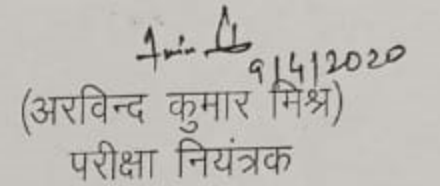 9/4/2020
(अरविन्द कुमार मिश्र)
परीक्षा नियंत्रक